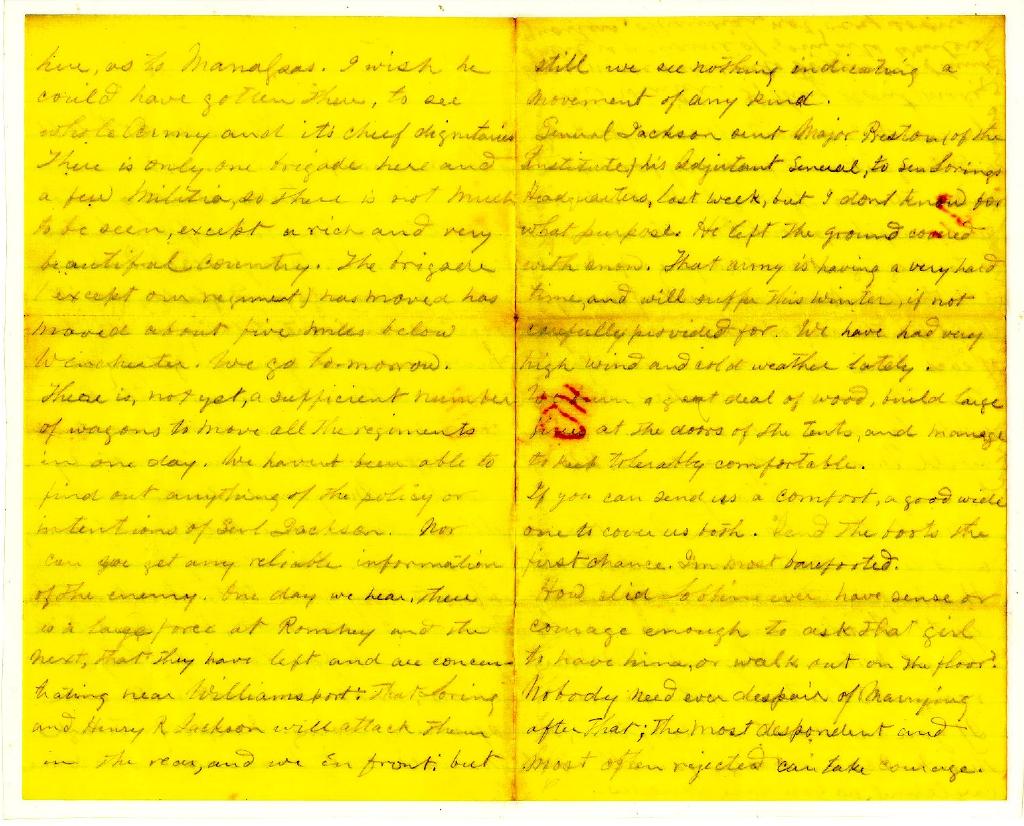 here, as to Manassas. I wish he
could have gotten there, to see
whole Army and its chief dignitaries
There is only one brigade here and
a few Militia, so there is not much
to be seen, except a rich and very
beautiful country. The brigade
(except our regiment) has moved has
moved about five miles below
Winchester. We go tomorrow.
There is, not yet, a sufficient number
of wagons to move all the regiments
in one day. We havent been able to
find out anything of the policy or
intentions of Genl Jackson. Nor
can you get any reliable information
of the enemy. One day we hear, there
is a large force at Romney and the
next, that they have left and are concen-
trating near Williamsport: That Loring
and Henry R Jackson will attack them
in the rear, and we in front; but
still we see nothing indicating a
movement of any kind.
General Jackson sent Major Preston (of the
Institute) his Adjutant General, to Gen Lorings
Headquarters, last week, but I dont know for
what purpose. He left the ground covered
with snow. That army is having a very hard
time, and will suffer this winter, if not
carefully provided for. We have had very
high wind and cold weather lately.
We burn a great deal of wood, build large
fires at the doors of the tents, and manage
to keep tolerably comfortable.
If you can send us a comfort, a good wide
one to cover us both. Send the boots the
first chance. I'm most barefooted.
How did ever have sense or
courage enough to ask that girl
to have him, or walk out on the floor?
Nobody need ever despair of Marrying
after that; the most despondent and
most often rejected can take courage.